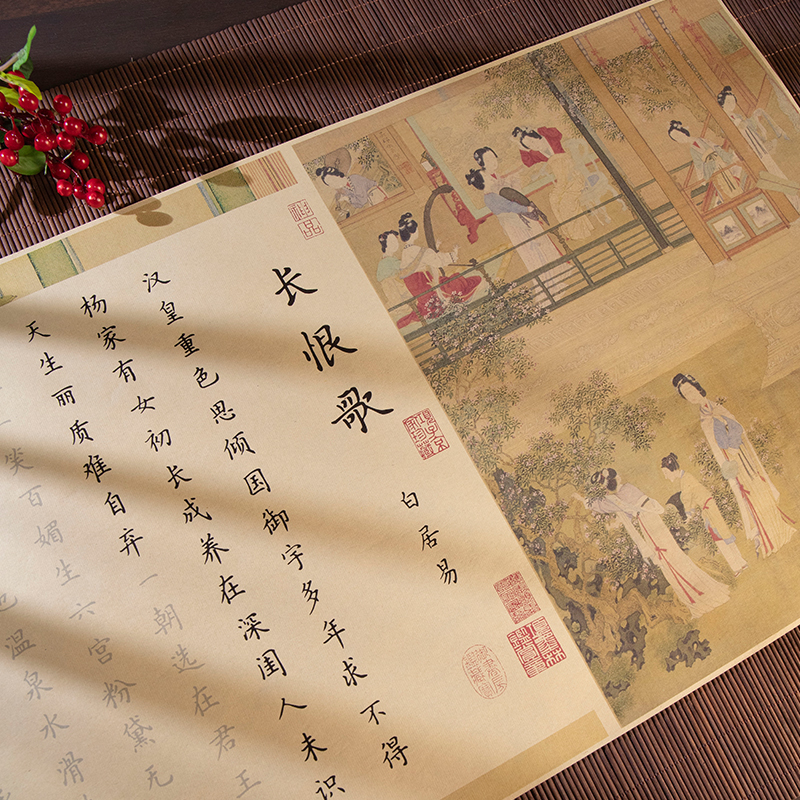 神品
长恨歌
白居易
汉皇重色思倾国御宇多年求不得
杨家有女初长成养在深闺人未识
天生丽质难自弃一朝选在君王
一笑百媚生六宫粉黛无
温泉水滑